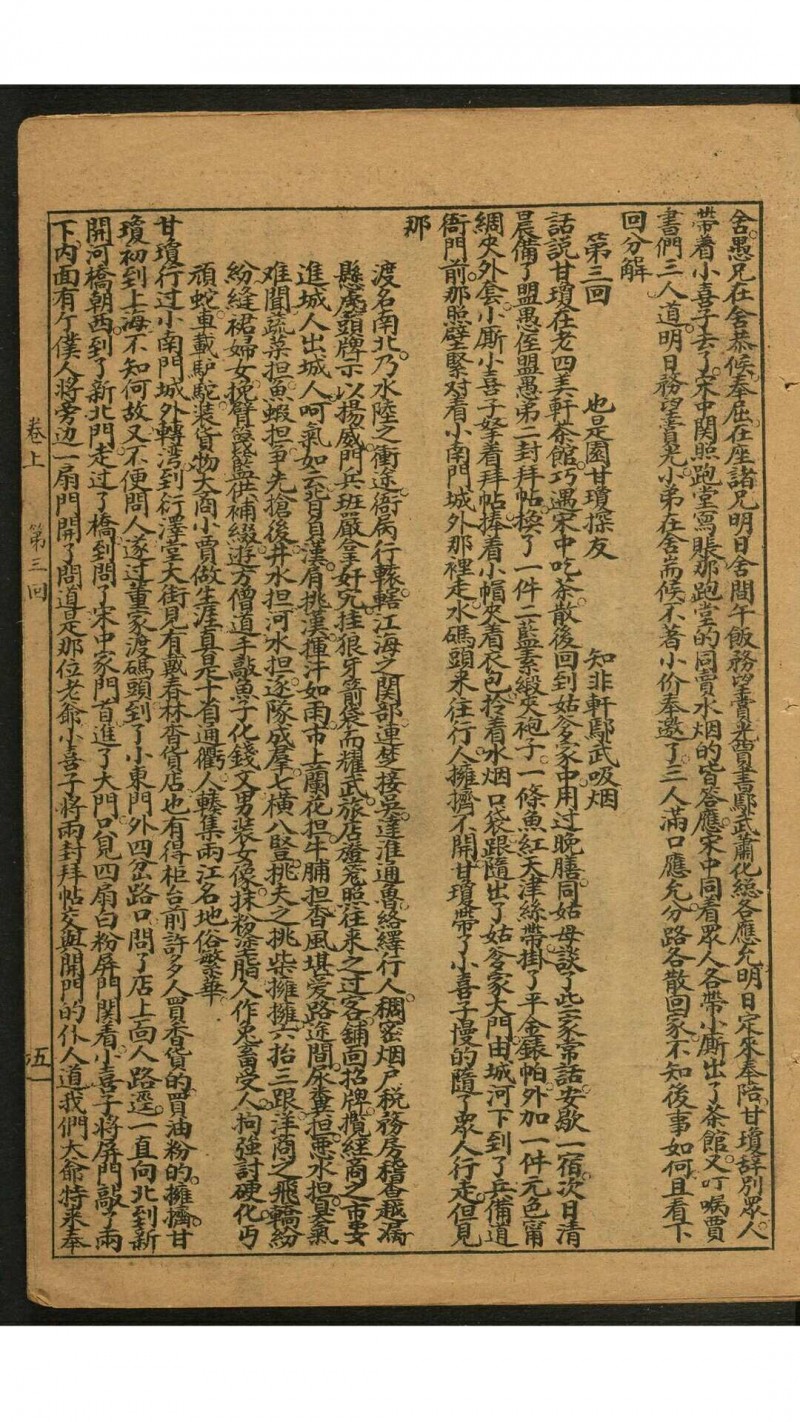 舍愚兄在舍恭候奉屈在座諸兄明日舍間午飯務望賞光賈書鄢武蕭化總各應允明日定來奉陪甘瓊辞別眾人
帶着小喜子去了宋中関照跑堂寫賬那跑堂的同賣水烟的皆答應宋中同着眾人各帶小廝出了茶館又叮嘱賈
書們三人道明日務望賞光小弟在舍耑候不著小价奉邀了三人滿口應允分路各散回家不知後事如何且看下
回分解
第三回 也是園甘瓊探友 知非軒鄢武吸烟
話説甘瓊在老四美軒茶館巧遇宋中吃茶散後回到姑爹家中用过晚膳同姑母談了些家常話安歇一宿次日清
晨備了盟愚侄盟愚弟二封拜帖換了一件二藍素緞夾袍子一條魚紅天津絲帶掛了平金錶帕外加一件元色甯
綢夾外套小廝小喜子拏着拜帖捧着小帽夾着衣包拎着水烟口袋跟隨出了姑爹家大門由城河下到了兵備道
衙門前那照壁緊对着小南門城外那裡走水碼頭来往行人擁擠不開甘瓊帶了小喜子慢的隨了眾人行走但見
那
渡名南北乃水陸之衝途衙居行轅轄江海之関部連梦接吳達淮通魯絡繹行人稠密烟户税務房稽查越漏
縣處頭牌示以揚威門兵班嚴拿奸宄挂狼牙箭袋而耀武旅店燈篭照往来之过客舖面招牌攬経商之市安
進城人出城人呵氣如云背負漢肩挑漢揮汗如雨市上蘭花担牛脯担香風堪爱路途間尿糞担悪水担臭氣
难聞蔬菜担魚蝦担争先搶後井水担河水担逐隊成羣七横八豎挑夫之挑柴擁擁六抬三跟洋商之飛轎紛
紛縫裙婦女挽臂籃供補綴遊方僧道手敲魚子化錢文男裝女像抹粉塗脂人作兎畜受人拘強討硬化丐
頑蛇車載馿駝装貨物大商小賈做生涯真是十省通衢人輳集兩江名地俗繁華
甘瓊行过小南門城外轉湾到衍澤堂大街見有戴春林香貨店也有得柜台前許多人買香貨的買油粉的擁擠甘
瓊初到上海不知何故又不便問人遂过董家渡碼頭到了小東門外四岔路口問了店上向人路逕一直向北到新
開河橋朝西到了新北門走过了橋到問了宋中家門首進了大門只見四扇白粉屏門関着小喜子將屏門敲了兩
下内面有个僕人將旁边一扇門開了問道是那位老爺小喜子將兩封拜帖交與開門的仆人道我們大爺特来奉
卷上 第三回 五